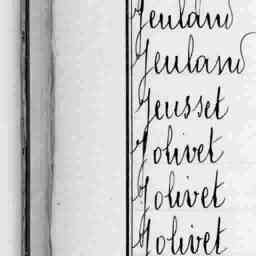 Jeuland
Jeuland
Jeusset
Jolivet
Jolivet
Jolivet